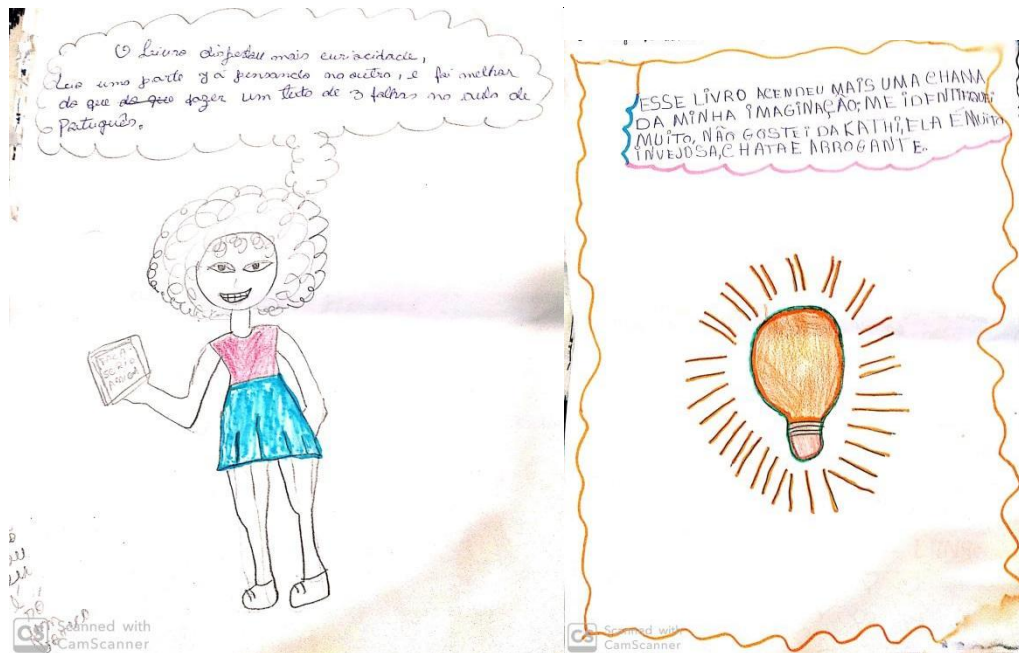 O Leivro dispertou mais curiacidade,
Leio uma parte ja pensando no outro, e foi melhar
do que do que fazer um texto de 3 folhas na aula de
Português.
FALA
SÉRIO
AMIGA
ESSE LIVRO ACENDEU MAIS UMA CHAMA
DA MINHA IMAGINAÇÃO, ME IDENTIFIQUEI
MUITO, NÃO GOSTEI DA KATHI, ELA É MUITO
INVEJOSA, CHATA E ARROGANTE.
CS Scanned with
CamScanner
CS Scanned with
CamScanner